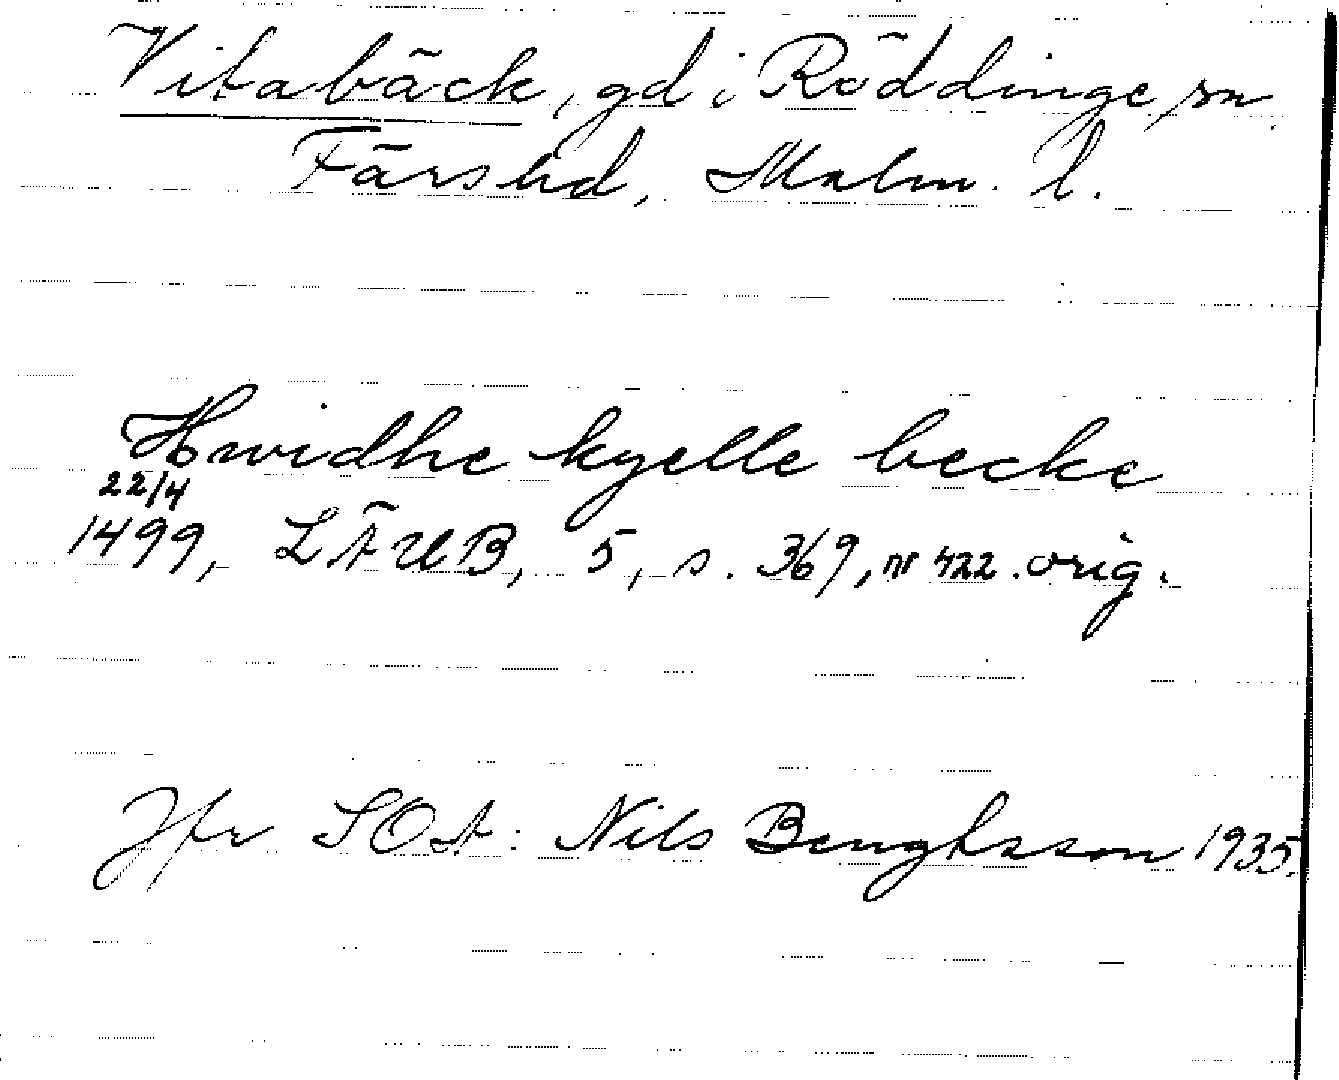 Vitabäck, gd i Röddinge sn.
Färs hd, Malm. l.
Hwidhe kyelle becke
22/4
1499, LÄUB, 5, s. 369, nr 422. orig.
Jfr SOA: Nils Bengtsson 1935.